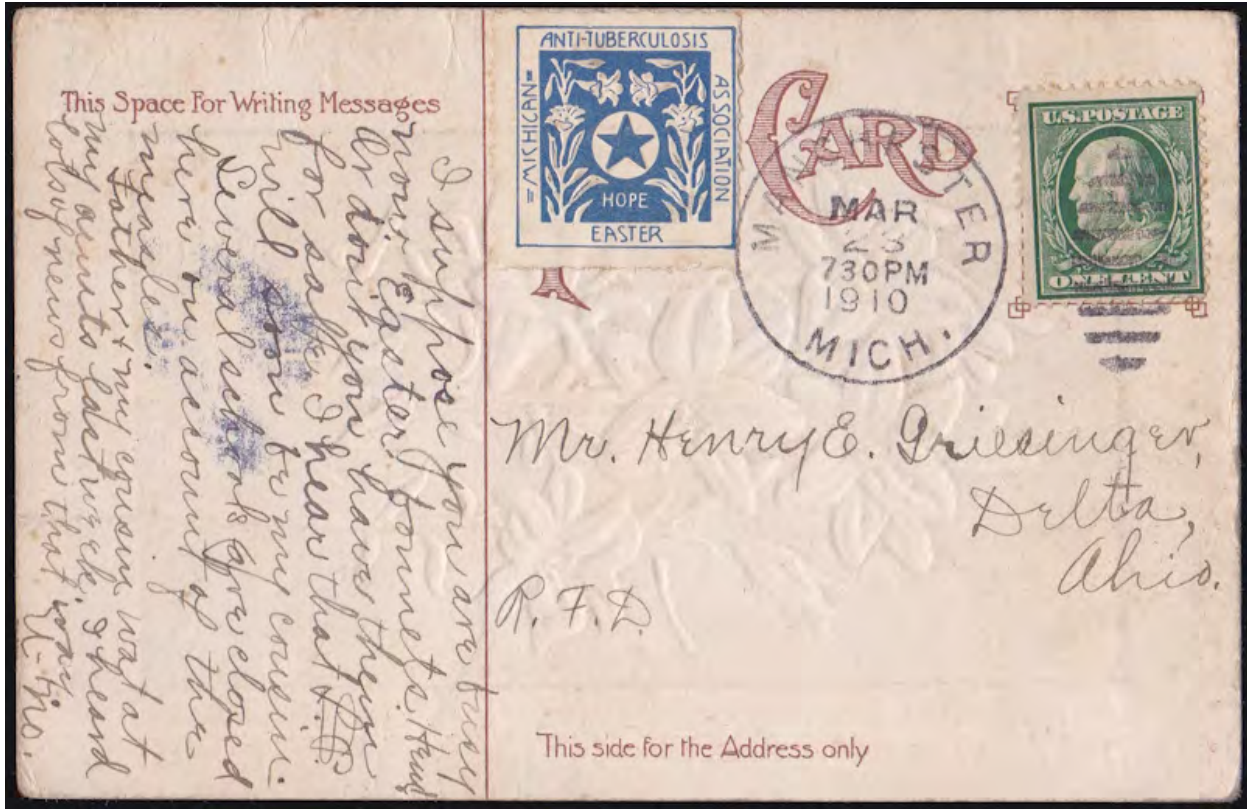 This Space For Writing Messages
I suppose you are busy
now, Easter bonnets.
Or don't you have them
for sale, I hear that
will soon be my cousin.
Several schools are closed
here on account of the
measles.
Father & my cousin was at
my aunts last week, I heard
lots of news from that way
U-No.
ANTI-TUBERCULOSIS
MICHIGAN
ASSOCIATION
HOPE
EASTER
CARD
MANCHESTER
MAR
23
730PM
1910
MICH.
U.S. POSTAGE
ONE CENT
Mr. Henry E. Griesinger,
Delta,
Ohio.
R. F. D.
This side for the Address only